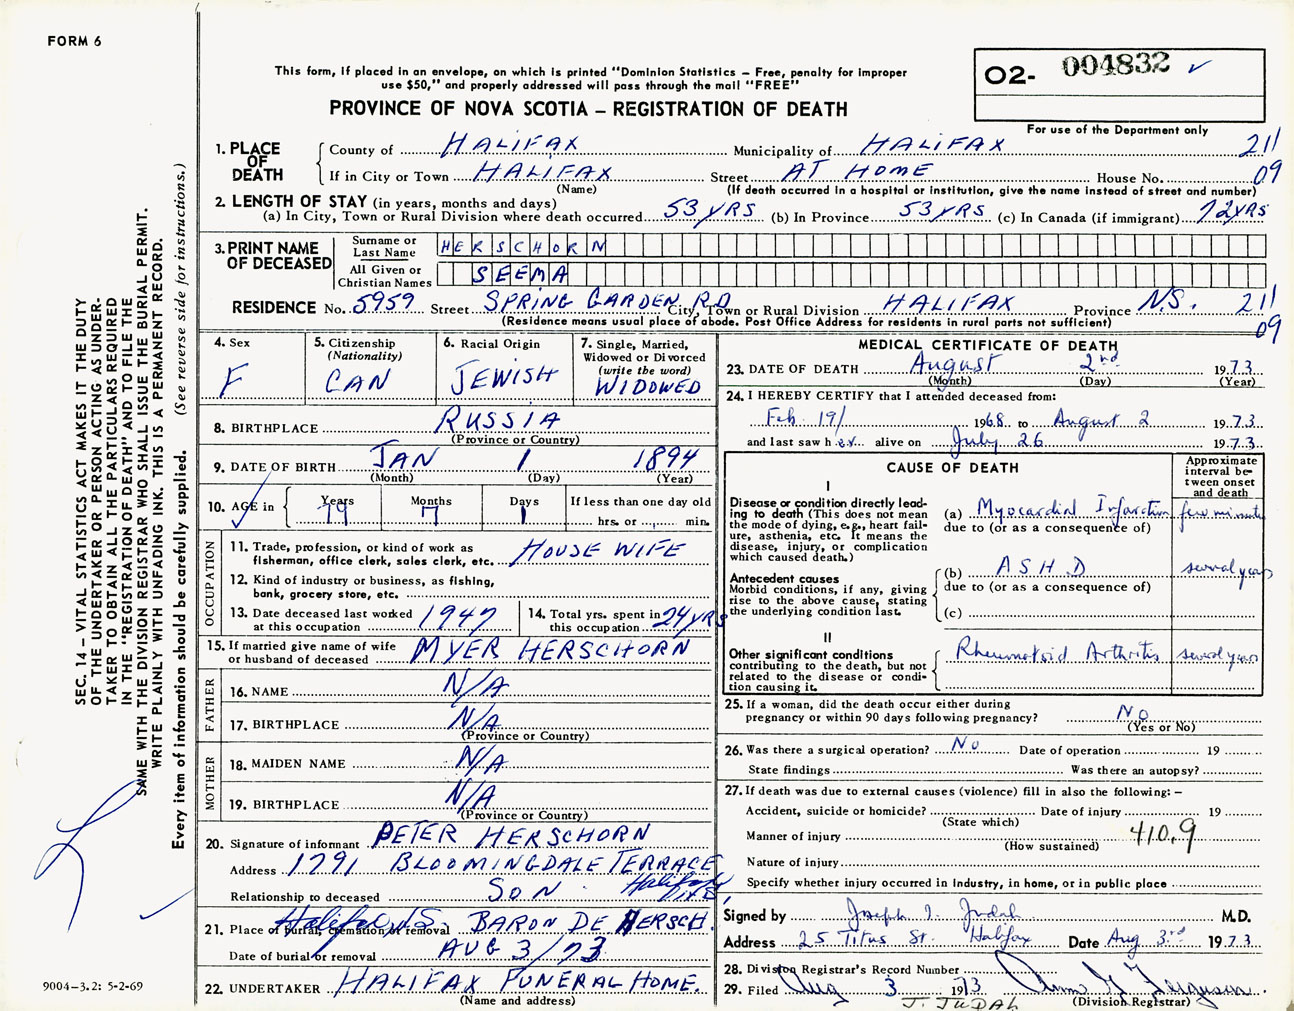 FORM 6
This form, if placed in an envelope, on which is printed "Dominion Statistics – Free, penalty for improper
use $50," and properly addressed will pass through the mail "FREE"
PROVINCE OF NOVA SCOTIA – REGISTRATION OF DEATH
O2- 004832 ✓
For use of the Department only
1. PLACE OF DEATH
County of HALIFAX Municipality of HALIFAX 211
If in City or Town HALIFAX Street AT HOME House No. 09
(Name) (If death occurred in a hospital or institution, give the name instead of street and number)
2. LENGTH OF STAY (in years, months and days)
(a) In City, Town or Rural Division where death occurred 53 YRS (b) In Province 53 YRS (c) In Canada (if immigrant) 72 YRS
3. PRINT NAME OF DECEASED
Surname or Last Name HERSCHORN
All Given or Christian Names SEEMA
RESIDENCE No. 5959 Street SPRING GARDEN RD City, Town or Rural Division HALIFAX Province N.S. 211
(Residence means usual place of abode. Post Office Address for residents in rural parts not sufficient) 09
4. Sex
F
5. Citizenship
(Nationality)
CAN
6. Racial Origin
JEWISH
7. Single, Married,
Widowed or Divorced
(write the word)
WIDOWED
8. BIRTHPLACE RUSSIA
(Province or Country)
9. DATE OF BIRTH JAN 1 1894
(Month) (Day) (Year)
10. AGE in Years Months Days If less than one day old
79 7 1 hrs. or min.
OCCUPATION
11. Trade, profession, or kind of work as
fisherman, office clerk, sales clerk, etc. HOUSE WIFE
12. Kind of industry or business, as fishing,
bank, grocery store, etc.
13. Date deceased last worked
at this occupation 1947
14. Total yrs. spent in
this occupation 24 YRS
15. If married give name of wife
or husband of deceased MYER HERSCHORN
FATHER
16. NAME N/A
17. BIRTHPLACE N/A
(Province or Country)
MOTHER
18. MAIDEN NAME N/A
19. BIRTHPLACE N/A
(Province or Country)
20. Signature of informant PETER HERSCHORN
Address 1791 BLOOMINGDALE TERRACE
Halifax
Relationship to deceased SON
21. Place of burial, cremation or removal Halifax N.S. BARON DE HERSCH.
Date of burial or removal AUG 3/73
22. UNDERTAKER HALIFAX FUNERAL HOME.
(Name and address)
MEDICAL CERTIFICATE OF DEATH
23. DATE OF DEATH August 2nd 1973
(Month) (Day) (Year)
24. I HEREBY CERTIFY that I attended deceased from:
Feb. 19/ 1968 to August 2 1973
and last saw her alive on July 26 1973
CAUSE OF DEATH
Approximate
interval be-
tween onset
and death
I
Disease or condition directly lead-
ing to death (This does not mean
the mode of dying, e.g., heart fail-
ure, asthenia, etc. It means the
disease, injury, or complication
which caused death.)
(a) Myocardial Infarction few minutes
due to (or as a consequence of)
Antecedent causes
Morbid conditions, if any, giving
rise to the above cause, stating
the underlying condition last.
(b) A S H D several years
due to (or as a consequence of)
(c)
II
Other significant conditions
contributing to the death, but not
related to the disease or condi-
tion causing it.
Rheumatoid Arthritis several years
25. If a woman, did the death occur either during
pregnancy or within 90 days following pregnancy? No
(Yes or No)
26. Was there a surgical operation? No Date of operation 19
State findings Was there an autopsy?
27. If death was due to external causes (violence) fill in also the following: –
Accident, suicide or homicide? Date of injury 19
(State which)
Manner of injury 410.9
(How sustained)
Nature of injury
Specify whether injury occurred in industry, in home, or in public place
Signed by Joseph I. Judah M.D.
Address 25 Titus St. Halifax Date Aug 3rd 1973
28. Division Registrar's Record Number
29. Filed Aug 3 1973 Ann G Ferguson
(Division Registrar)
J. JUDAH
SEC. 14 – VITAL STATISTICS ACT MAKES IT THE DUTY
OF THE UNDERTAKER OR PERSON ACTING AS UNDER-
TAKER TO OBTAIN ALL THE PARTICULARS REQUIRED
IN THE "REGISTRATION OF DEATH" AND TO FILE THE
SAME WITH THE DIVISION REGISTRAR WHO SHALL ISSUE THE BURIAL PERMIT.
WRITE PLAINLY WITH UNFADING INK. THIS IS A PERMANENT RECORD.
Every item of information should be carefully supplied. (See reverse side for instructions.)
9004-3.2: 5-2-69